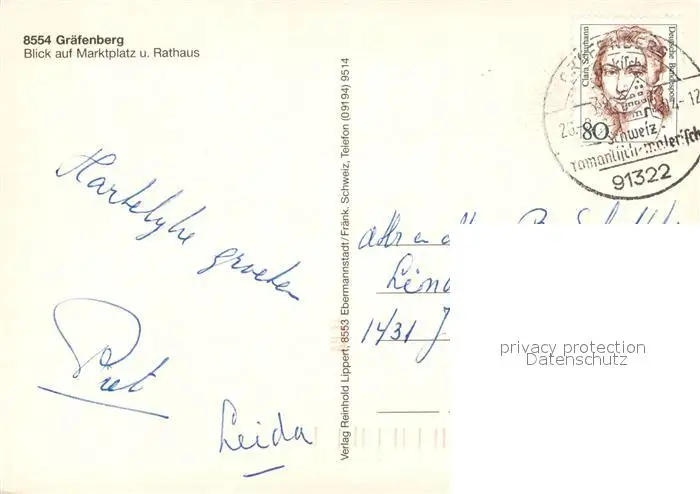 8554 Gräfenberg
Blick auf Marktplatz u. Rathaus
Hartelyke
groeten
Piet
Leida
Verlag Reinhold Lippert, 8553 Ebermannstadt/Fränk. Schweiz, Telefon (09194) 9514
Clara Schumann
Deutsche Bundespost
80
GRÄFENBERG
Schweiz
romantisch-malerisch
91322
1431
privacy protection
Datenschutz